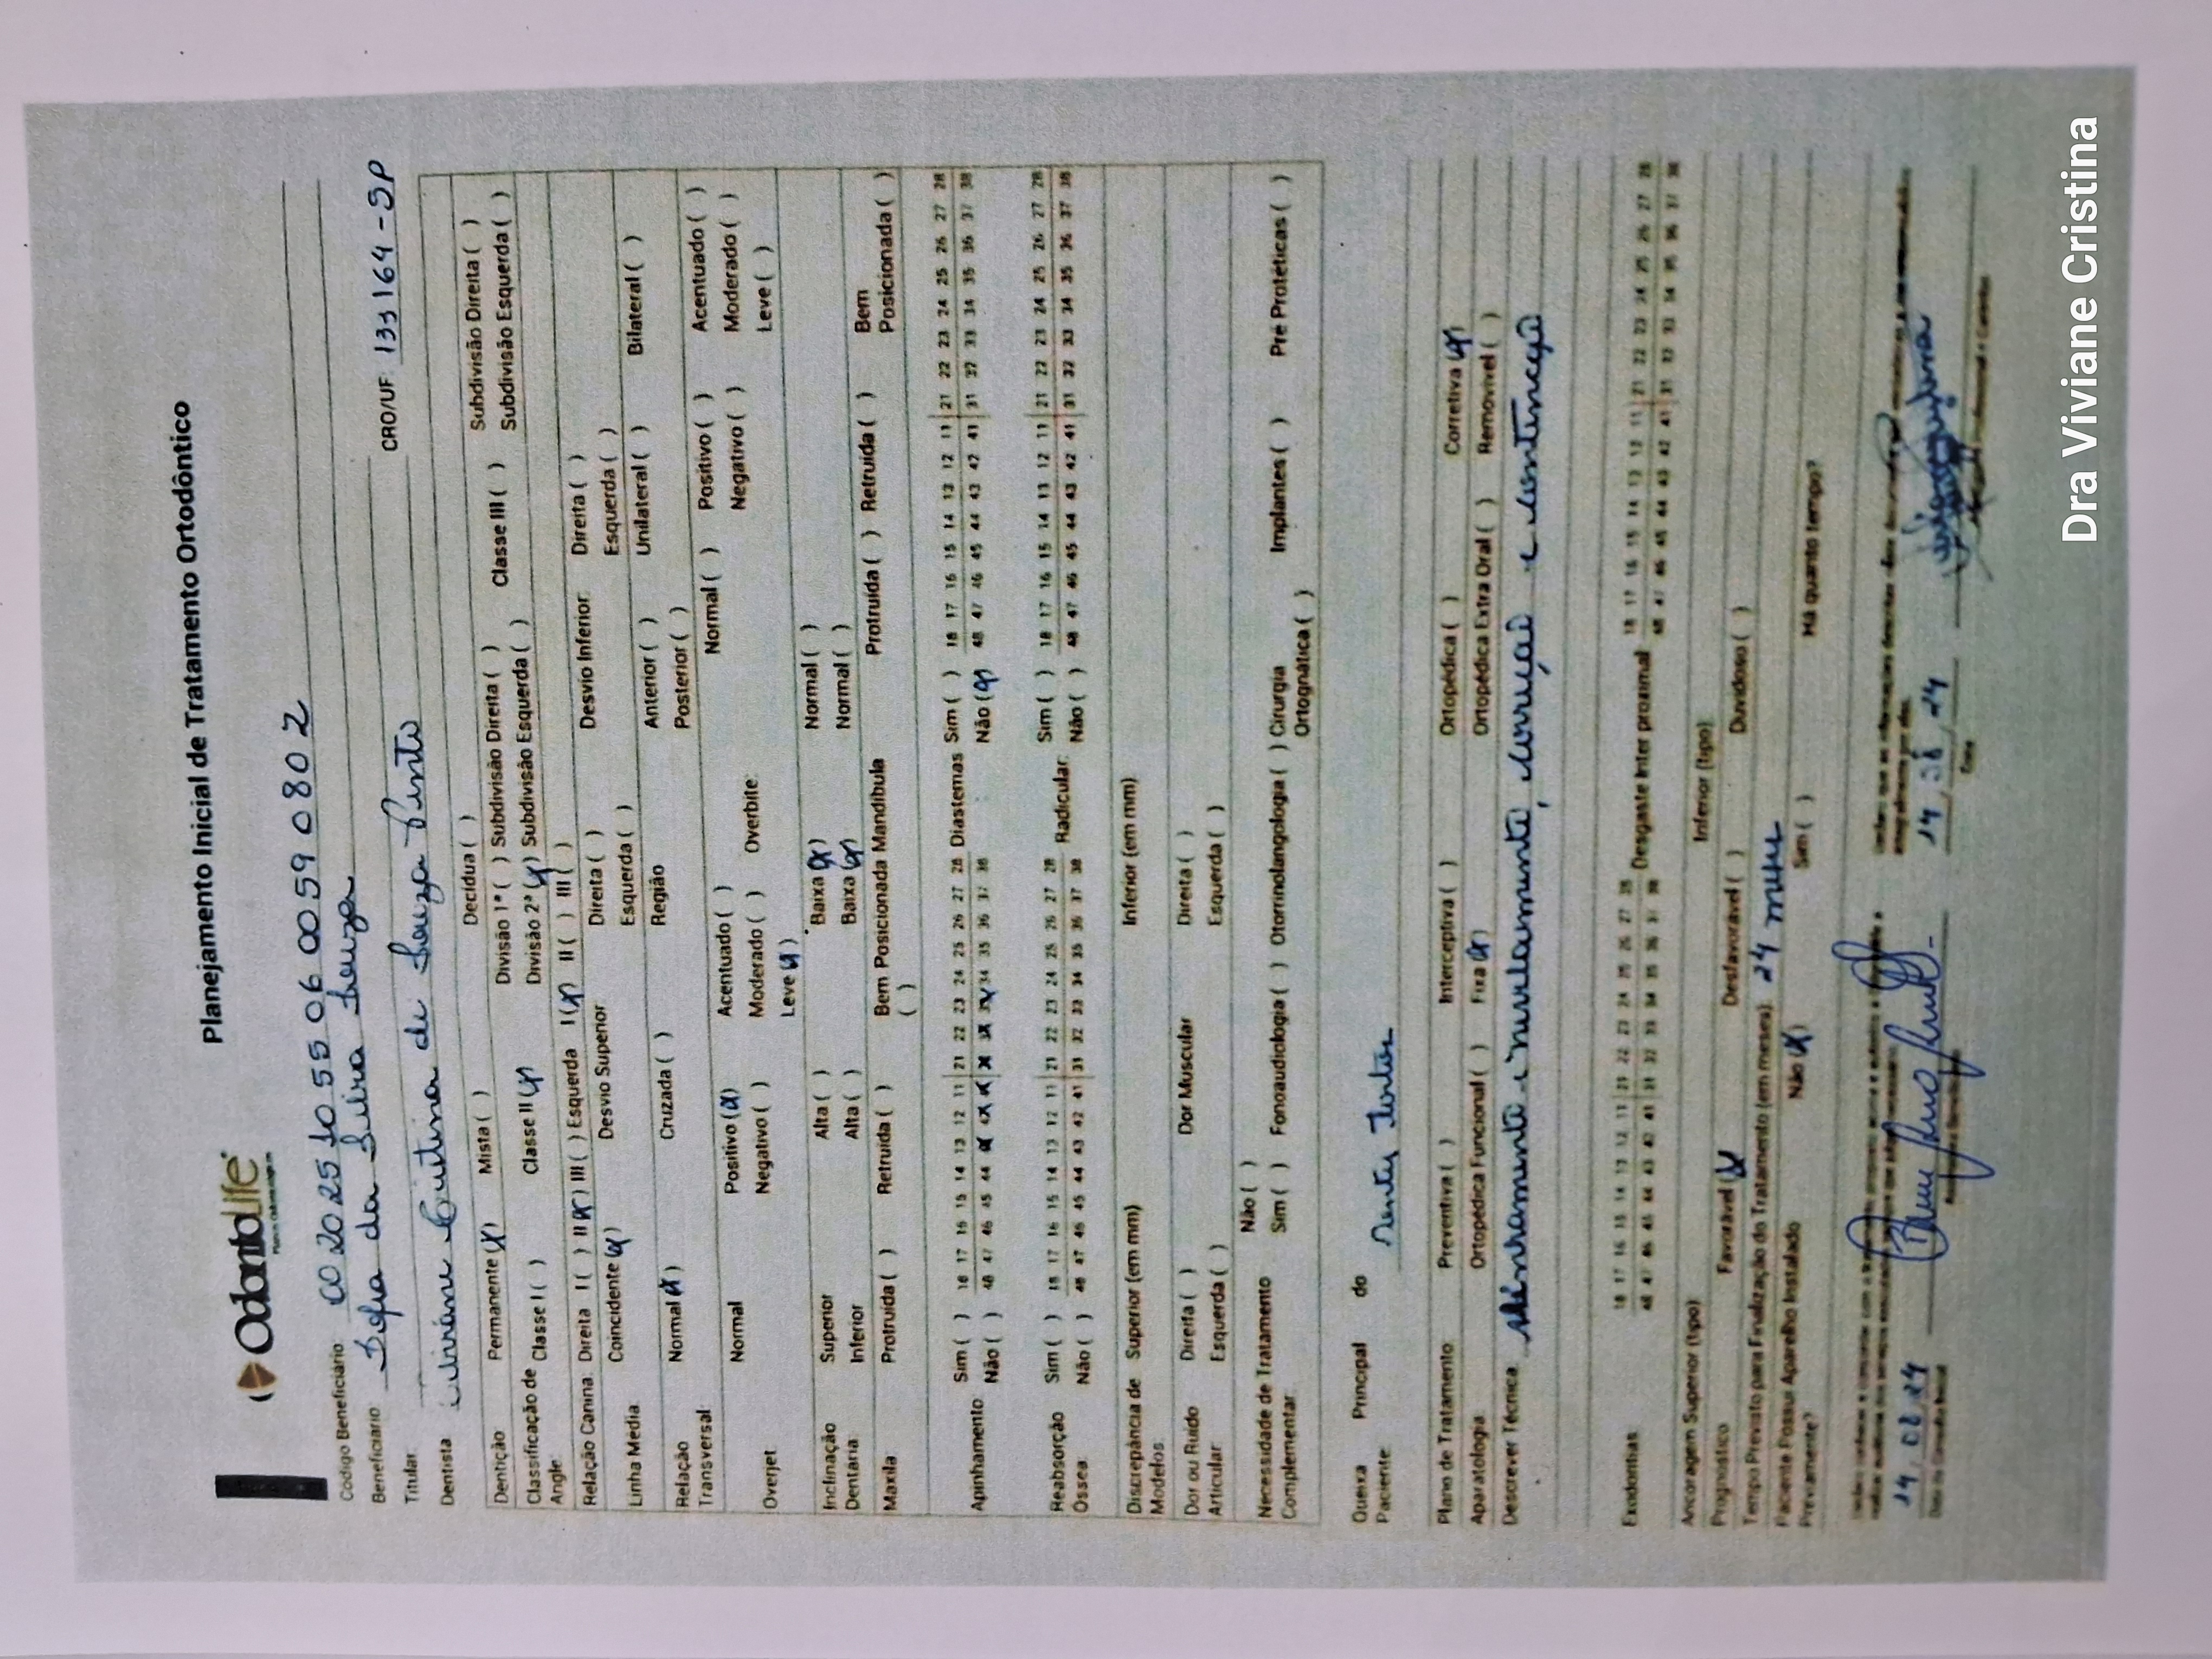 Planejamento Inicial de Tratamento Ortodôntico
OdontoLife
Código Beneficiário: 00 2025 10 55 06 0059 0802
Beneficiário Sofia da Silva Souza
Titular
CRO/UF: 133164-SP
Dentista Viviane Cristina de Souza Pinto
Dentição Permanente (X) Mista ( ) Decídua ( )
Classificação de Angle: Classe I ( ) Classe II (X) Divisão 1ª ( ) Subdivisão Direita ( ) Classe III ( ) Subdivisão Direita ( )
Divisão 2ª (X) Subdivisão Esquerda ( ) Subdivisão Esquerda ( )
Relação Canina: Direita I ( ) II (X) III ( ) Esquerda I (X) II ( ) III ( )
Linha Média Coincidente (X) Desvio Superior Direita ( ) Desvio Inferior: Direita ( )
Esquerda ( ) Esquerda ( )
Relação Transversal: Normal (X) Cruzada ( ) Região Anterior ( ) Unilateral ( ) Bilateral ( )
Posterior ( )
Overjet Normal Positivo (X) Acentuado ( ) Overbite: Normal ( ) Positivo ( ) Acentuado ( )
Negativo ( ) Moderado ( ) Negativo ( ) Moderado ( )
Leve (X) Leve ( )
Inclinação Dentária: Superior Alta ( ) Baixa (X) Normal ( )
Inferior Alta ( ) Baixa (X) Normal ( )
Maxila Protruída ( ) Retruída ( ) Bem Posicionada ( ) Mandíbula Protruída ( ) Retruída ( ) Bem Posicionada ( )
Apinhamento Sim ( ) 18 17 16 15 14 13 12 11 21 22 23 24 25 26 27 28 Diastemas Sim ( ) 18 17 16 15 14 13 12 11 21 22 23 24 25 26 27 28
Não ( ) 48 47 46 45 44 X X X X X X 34 35 36 37 38 Não (X) 48 47 46 45 44 43 42 41 31 32 33 34 35 36 37 38
Reabsorção Óssea: Sim ( ) 18 17 16 15 14 13 12 11 21 22 23 24 25 26 27 28 Radicular: Sim ( ) 18 17 16 15 14 13 12 11 21 22 23 24 25 26 27 28
Não ( ) 48 47 46 45 44 43 42 41 31 32 33 34 35 36 37 38 Não ( ) 48 47 46 45 44 43 42 41 31 32 33 34 35 36 37 38
Discrepância de Modelos: Superior (em mm) Inferior (em mm)
Dor ou Ruído Articular: Direita ( ) Dor Muscular Direita ( )
Esquerda ( ) Esquerda ( )
Necessidade de Tratamento Complementar: Não ( )
Sim ( ) Fonoaudiologia ( ) Otorrinolangologia ( ) Cirurgia Ortognática ( ) Implantes ( ) Pré Protéticas ( )
Queixa Principal do Paciente: dentes tortos
Plano de Tratamento Preventiva ( ) Interceptiva ( ) Ortopédica ( ) Corretiva (X)
Aparatologia: Ortopédica Funcional ( ) Fixa (X) Ortopédica Extra Oral ( ) Removível ( )
Descrever Técnica: Alinhamento, nivelamento, correção e contenção
Exodontias 18 17 16 15 14 13 12 11 21 22 23 24 25 26 27 28 Desgaste Inter proximal 18 17 16 15 14 13 12 11 21 22 23 24 25 26 27 28
48 47 46 45 44 43 42 41 31 32 33 34 35 36 37 38 48 47 46 45 44 43 42 41 31 32 33 34 35 36 37 38
Ancoragem Superior (tipo) Inferior (tipo)
Prognóstico Favorável (X) Desfavorável ( ) Duvidoso ( )
Tempo Previsto para Finalização do Tratamento (em meses): 24 meses
Paciente Possui Aparelho Instalado Previamente? Não (X) Sim ( ) Há quanto tempo?
14/08/24
14/08/24
Data
Dra Viviane Cristina